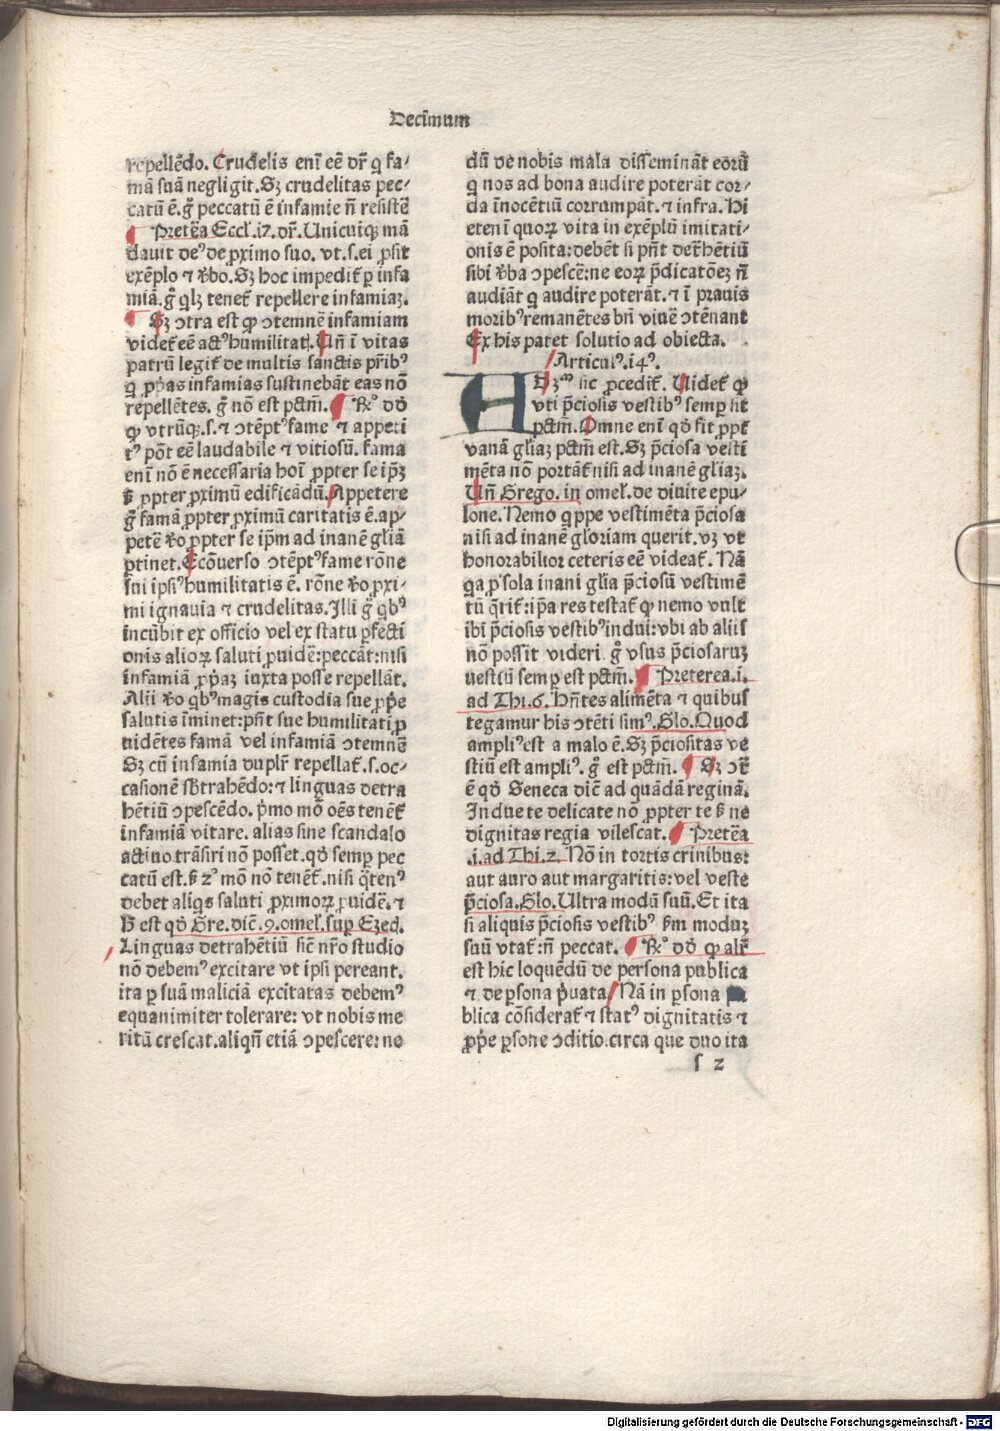 Decĩmum
repellēdo. Crudelis enĩ eē dr̃ q fa/
mã suã negligit. Sꝫ crudelitas pec/
catū ē. gͦ peccatū ē infamie ñ resistē
Preteͣa Eccľ. 17. dr̃. Unicuiqꝫ mã
dauit deꝰ de ꝓximo suo. vt. s. ei ꝓsit
exēplo ⁊ v̾bo. Sꝫ hoc impedit̃ ꝑ infa
miã. gͦ qlꝫ tenet̃ repellere infamiaꝫ.
Sꝫ ↄtra est ꝙ ↄtemnē infamiam
videt̃ eē actꝰ humilitat̃. Uñ ĩ vitas
patrū legit̃ de multis sanctis pr̃ibꝰ
q ꝓpͥas infamias sustinebãt eas nõ
repellētes. gͦ nõ est pct̃m. Rͦ dõ
ꝙ vtrūqꝫ. s. ⁊ ↄtēptꝰ fame ⁊ appeti
tꝰ põt eē laudabile ⁊ vitiosū. fama
enĩ nõ ē necessaria hoĩ ꝓpter se ip̃ꝫ
ß ꝓpter ꝓximū edificãdū. Appetere
gͦ famã ꝓpter ꝓximū caritatis ē. ap/
petē v̾o ꝓpter se ip̃m ad inanē gliã
ꝑtinet. Ecōuerso ↄtēptꝰ fame rõne
sui ipsiꝰ humilitatis ē. rõne v̾o ꝓxi/
mi ignauia ⁊ crudelitas. Illi gͦ qbꝰ
incūbit ex officio vel ex statu ꝑfecti
onis alioꝝ saluti ꝓuidē: peccãt: nisi
infamiã ꝓpͥaꝫ iuxta posse repellãt.
Alii v̾o qbꝰ magis custodia sue ꝓpͥe
salutis ĩminet: pñt sue humilitati ꝓ
uidētes famã vel infamiã ↄtemnē
Sꝫ cū infamia duplr̃ repellat̃. s. oc/
casionē sb̾trahēdo: ⁊ linguas detra
hētiū ↄpescēdo. pͥmo mõ oēs tenēt̃
infamiã vitare. alias sine scandalo
actiuo trãsiri nõ posset. qõ semꝑ pec
catū est. ß 2ͦ mõ nõ tenēt̃. nisi qͣtenꝰ
debet aliqs saluti ꝓximoꝝ ꝓuidē. ⁊
ß est qõ Gre. dic̃. 9. omeľ. suꝑ Ezec̃.
Linguas detrahētiū sic̃ nr̃o studio
nõ debemꝰ excitare vt ipsi pereant.
ita ꝑ suã maliciã excitatas debemꝰ
equanimiter tolerare: vt nobis me
ritū crescat. aliqñ etiã ↄpescere: ne
dū de nobis mala disseminãt eoꝝ
q nos ad bona audire poterãt cor/
da ĩnocētiū corrumpãt. ⁊ infra. Hi
etenĩ quoꝝ vita in exēplū imitati/
onis ē posita: debēt si pñt det̾hētiū
sibi v̾ba ↄpescē: ne eoꝝ p̃dicatõeꝫ ñ
audiãt q audire poterãt. ⁊ ĩ prauis
moribꝰ remanētes bñ viuē ↄtēnant
Ex his patet solutio ad obiecta.
Articulꝰ. 14ꝰ.
AD 2ᵐ sic ꝓcedit̃. Uidet̃ ꝙ
vti p̃ciosis vestibꝰ semꝑ sit
pct̃m. Omne enĩ qõ fit ꝓpt̾
vanã gliaꝫ pct̃m est. Sꝫ p̃ciosa vesti
mēta nõ portãt̃ nisi ad inanē gliaꝫ.
Uñ Grego. in omeľ. de diuite epu/
lone. Nemo qͥppe vestimēta p̃ciosa
nisi ad inanē gloriam querit. vꝫ vt
honorabilior ceteris eē videat̃. Nã
qꝛ ꝓ sola inani glia p̃ciosū vestimē
tū qͣrit̃: ip̃a res testat̃ ꝙ nemo vult
ibi p̃ciosis vestibꝰ indui: vbi ab aliis
nõ possit videri. gͦ vsus p̃ciosaruꝫ
uestiū semꝑ est pct̃m. Preterea. i.
ad Thi. 6. Hñtes alimēta ⁊ quibus
tegamur his ↄtēti simꝰ. Glo. Quod
ampliꝰ est a malo ē. Sꝫ p̃ciositas ve
stiū est ampliꝰ. gͦ est pct̃m. Sꝫ ↄt̾
ē qõ Seneca dic̃ ad quãdã reginã.
Indue te delicate nõ ꝓpter te ß ne
dignitas regia vilescat. Preteͣa
.i. ad Thi. 2. Nõ in tortis crinibus:
aut auro aut margaritis: vel veste
p̃ciosa. Glo. Ultra modū suū. Et ita
si aliquis p̃ciosis vestibꝰ ẜm moduꝫ
suū vtat̃: ñ peccat. Rͦ dõ ꝙ alit̾
est hic loquēdū de persona publica
⁊ de ꝑsona pͥuata. Nã in ꝑsona pu
blica cõsiderat̃ ⁊ statꝰ dignitatis ⁊
ꝓpͥe ꝑsone ↄditio. circa que duo ita
s 2
Digitalisierung gefördert durch die Deutsche Forschungsgemeinschaft - DFG